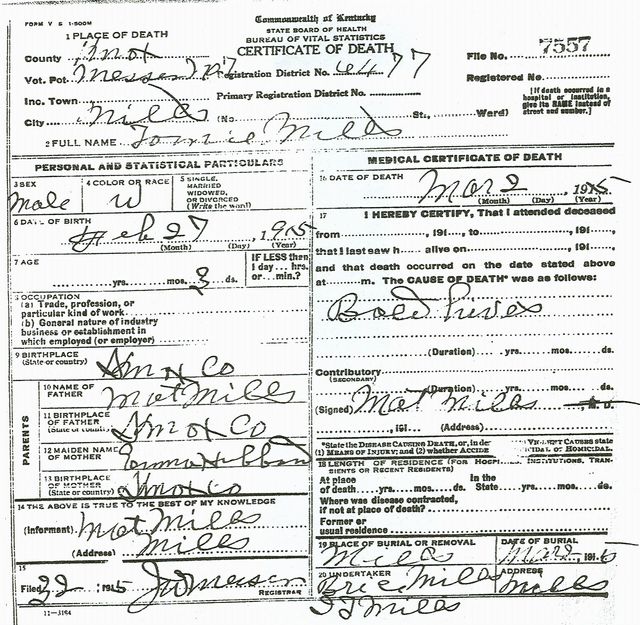 FORM V S 1-500M
Commonwealth of Kentucky
STATE BOARD OF HEALTH
BUREAU OF VITAL STATISTICS
CERTIFICATE OF DEATH
1 PLACE OF DEATH
County Knox
Vot. Pct. Registration District No. 6477 File No. 7557
Inc. Town Primary Registration District No. Registered No.
City Mills (No. St., Ward)
[If death occurred in a hospital or institution, give its NAME instead of street and number.]
2 FULL NAME Tommie Mills
PERSONAL AND STATISTICAL PARTICULARS
3 SEX
Male
4 COLOR OR RACE
W
5 SINGLE, MARRIED WIDOWED, OR DIVORCED (Write the word)
6 DATE OF BIRTH
Feb 27, 1915
(Month) (Day) (Year)
7 AGE
yrs. mos. 3 ds.
IF LESS than 1 day... hrs. or... min.?
8 OCCUPATION
(a) Trade, profession, or particular kind of work
(b) General nature of industry business or establishment in which employed (or employer)
9 BIRTHPLACE (State or country) Knox Co
PARENTS
10 NAME OF FATHER Mat Mills
11 BIRTHPLACE OF FATHER (State or country) Knox Co
12 MAIDEN NAME OF MOTHER Emma Hubbard
13 BIRTHPLACE OF MOTHER (State or country) Knox Co
14 THE ABOVE IS TRUE TO THE BEST OF MY KNOWLEDGE
(Informant) Mat Mills
(Address) Mills
15
Filed 22, 1915
REGISTRAR
11-3184
MEDICAL CERTIFICATE OF DEATH
16 DATE OF DEATH
Mar 2, 1915
(Month) (Day) (Year)
17 I HEREBY CERTIFY, That I attended deceased
from , 191 , to , 191 ,
that I last saw h alive on , 191 ,
and that death occurred on the date stated above
at m. The CAUSE OF DEATH* was as follows:
Bold hives
(Duration) yrs. mos. ds.
Contributory (SECONDARY)
(Duration) yrs. mos. ds.
(Signed) Mat Mills M. D.
, 191 (Address)
*State the DISEASE CAUSING DEATH, or, in de VIOLENT CAUSES state
(1) MEANS OF INJURY; and (2) whether ACCIDE CIDAL OF HOMICIDAL.
18 LENGTH OF RESIDENCE (FOR HOSPI INSTITUTIONS, TRANSIENTS OR RECENT RESIDENTS)
At place of death yrs. mos. ds. In the State yrs. mos. ds.
Where was disease contracted, if not at place of death?
Former or usual residence
19 PLACE OF BURIAL OR REMOVAL
Mills
DATE OF BURIAL
Mar 2 1915
20 UNDERTAKER
Mills
ADDRESS
Mills
Mills